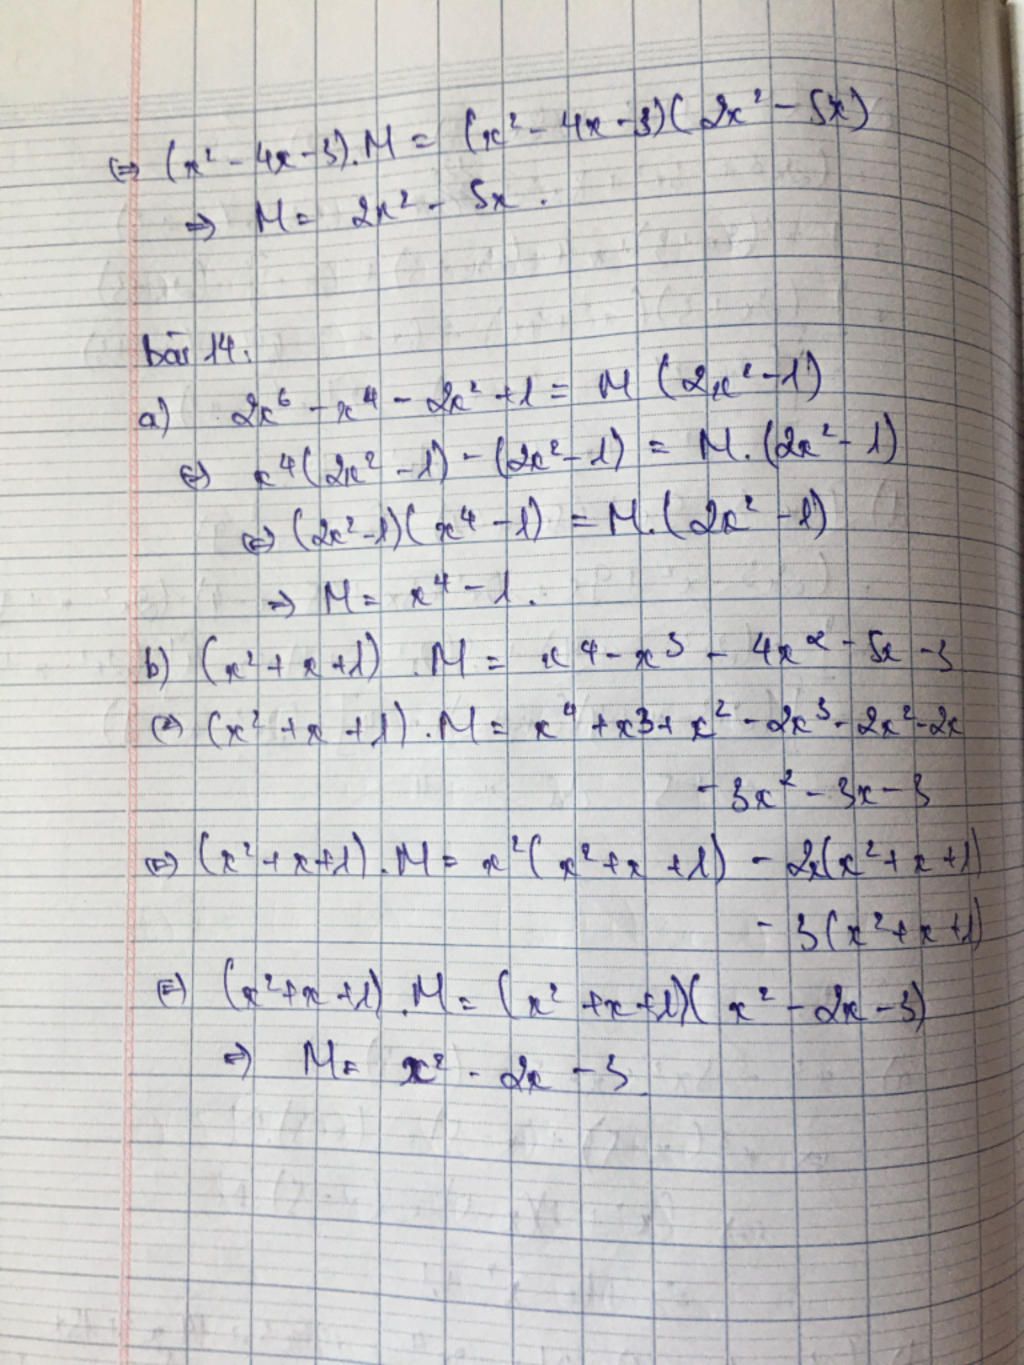 ⇔ (x² - 4x - 3).M = (x² - 4x - 3)(2x² - 5x)
⇒ M = 2x² - 5x.
bài 14.
a) 2x⁶ - x⁴ - 2x² + 1 = M (2x² - 1)
⇔ x⁴(2x² - 1) - (2x² - 1) = M.(2x² - 1)
⇔ (2x² - 1)(x⁴ - 1) = M.(2x² - 1)
⇒ M = x⁴ - 1.
b) (x² + x + 1).M = x⁴ - x³ - 4x² - 5x - 3
⇔ (x² + x + 1).M = x⁴ + x³ + x² - 2x³ - 2x² - 2x
- 3x² - 3x - 3
⇔ (x² + x + 1).M = x²(x² + x + 1) - 2x(x² + x + 1)
- 3(x² + x + 1)
⇔ (x² + x + 1).M = (x² + x + 1)(x² - 2x - 3)
⇒ M = x² - 2x - 3